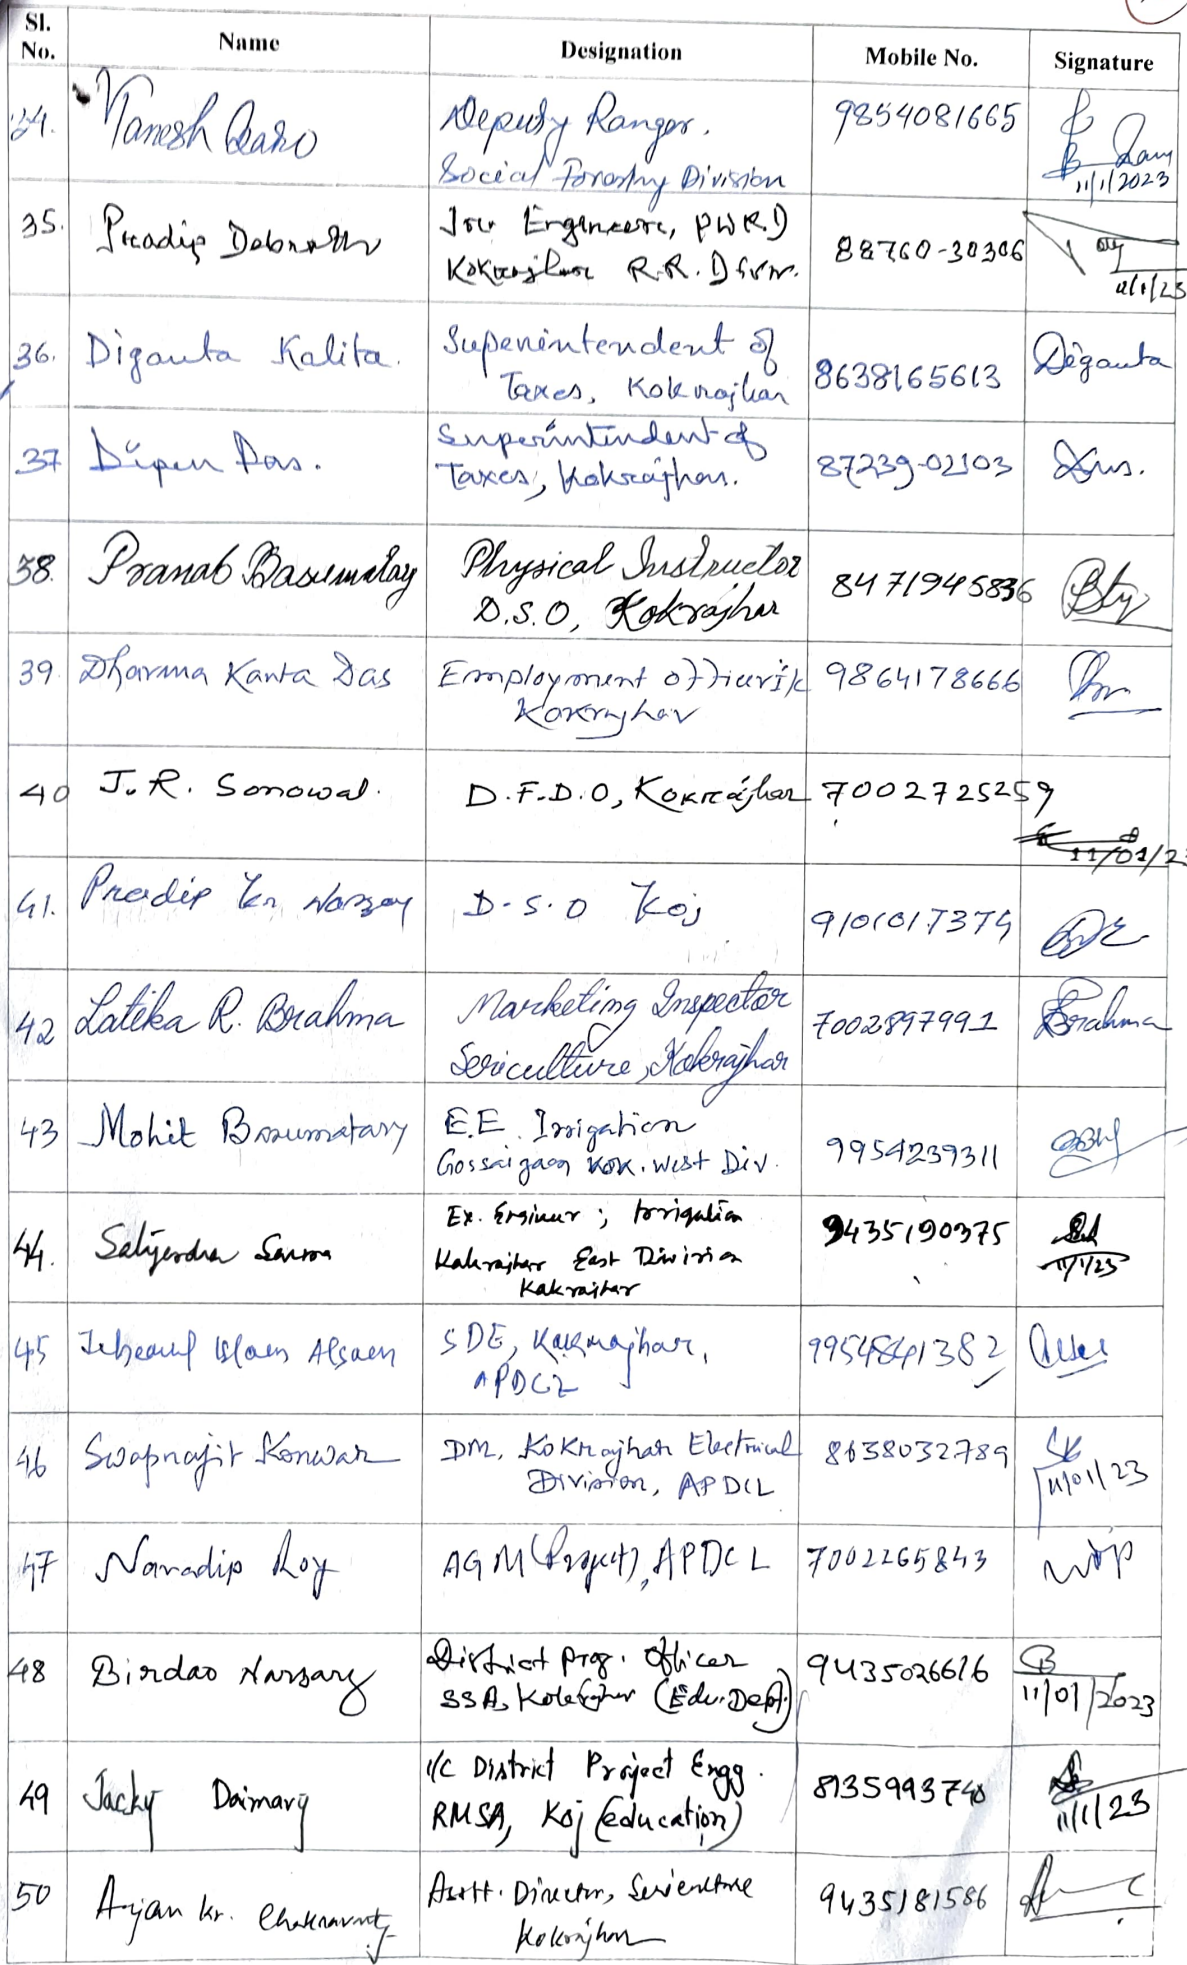 Sl. No. Name Designation Mobile No. Signature
34. Deputy Ranger, 9854081665
Social Forestry Division 11/1/2023
35. Pradip Debnath Engineer, PWRD 88760-30306
Kokrajhar R.R. Divn. 11/1/23
36. Diganta Kalita. Superintendent of Taxes, Kokrajhar 8638165613 Diganta
37 Dipen Das. Superintendent of Taxes, Kokrajhar. 87239-02103 Das.
38. Pranab Basumatary Physical Instructor D.S.O, Kokrajhar 8471945836
39. Dharma Kanta Das Employment officer Kokrajhar 9864178666
40 J. R. Sonowal. D.F.D.O, Kokrajhar 7002725259
11/01/23
41. Pradip Kr Narzary D.S.O Koj 9101017374
42 Latika R. Brahma Marketing Inspector Sericulture, Kokrajhar 7002897991 Brahma
43 Mohit Basumatary E.E. Irrigation
Gossaigaon Kok. West Div. 9954239311
44. Satyendra Sarma Ex. Engineer; Irrigation
Kokrajhar East Division
Kokrajhar 9435190375 11/1/23
45 SDE, Kokrajhar, APDCL 9954841382
46 Swapnajit Konwar DM, Kokrajhar Electrical Division, APDCL 8638032789 SK 11/01/23
47 Naradip Roy AGM (Project), APDCL 7002265843
48 Birdao Narzary District Prog. Officer
SSA, Kokrajhar (Edu. Dept.) 9435026616 11/01/2023
49 Jacky Daimary i/c District Project Engg.
RMSA, Koj (education) 8135993740 11/1/23
50 Anjan kr. Chakravarty Asstt. Director, Sericulture
Kokrajhar 9435181586